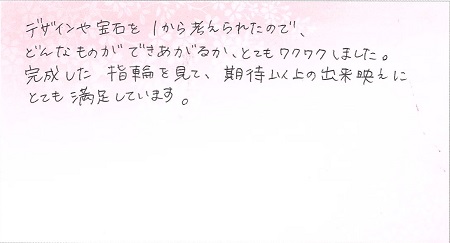 デザインや宝石を1から考えられたので、
どんなものができあがるか、とてもワクワクしました。
完成した指輪を見て、期待以上の出来映えに
とても満足しています。